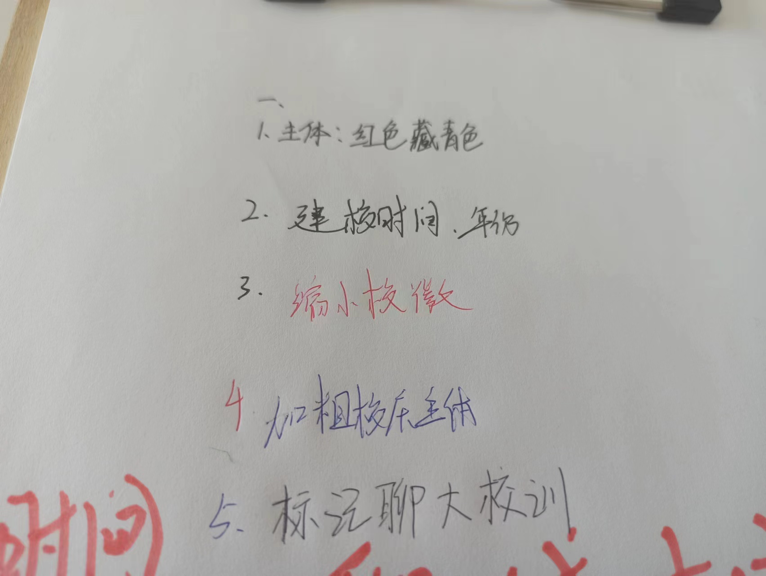 一、
1. 主体：红色藏青色
2. 建校时间、年份
3. 缩小校徽
4 加粗校庆主体
5. 标记聊大校训
时间)